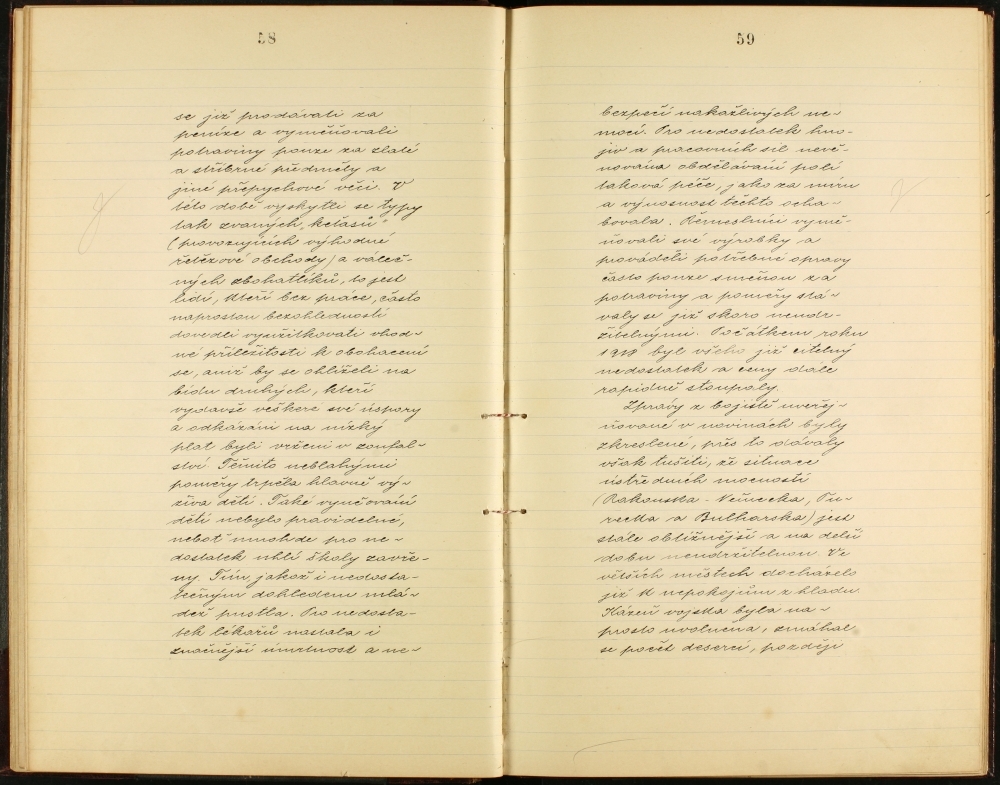 58
se již prodávati za
peníze a vyměňovali
potraviny pouze za zlaté
a stříbrné předměty a
jiné přepychové věci. V
této době vyskytli se typy
tak zvaných „keťasů"
(provozujících výhodné
řetězové obchody) a váleč-
ných zbohatlíků, to jest
lidí, kteří bez práce, často
naprostou bezohledností
dovedli využitkovati vhod-
né příležitosti k obohacení
se, aniž by se ohlíželi na
bídu druhých, kteří
vydavše veškeré své úspory
a odkázáni na nízký
plat byli vrženi v zoufal-
ství. Těmito neblahými
poměry trpěla hlavně vý-
živa dětí. Také vyučování
dětí nebylo pravidelné,
neboť mnohde pro ne-
dostatek uhlí školy zavře-
ny. Tím, jakož i nedosta-
tečným dohledem mlá-
dež pustla. Pro nedosta-
tek lékařů nastala i
značnější úmrtnost a ne-
59
bezpečí nakažlivých ne-
mocí. Pro nedostatek hno-
jiv a pracovních sil nevě-
nována obdělávání polí
taková péče, jako za míru
a výnosnost těchto ocha-
bovala. Řemeslníci vymě-
ňovali své výrobky a
prováděli potřebné opravy
často pouze směnou za
potraviny a poměry stá-
valy se již skoro neudr-
žitelnými. Počátkem roku
1918 byl všeho již citelný
nedostatek a ceny dále
rapidně stoupaly.
Zprávy z bojiště uveřej-
ňované v novinách byly
zkreslené, přes to dávaly
však tušiti, že situace
ústředních mocností
(Rakouska - Německa, Tu-
recka a Bulharska) jest
stále obtížnější a na delší
dobu neudržitelnou. Ve
větších městech docházelo
již k nepokojům z hladu.
Kázeň vojska byla na-
prosto uvolněna, zmáhal
se počet desercí, později